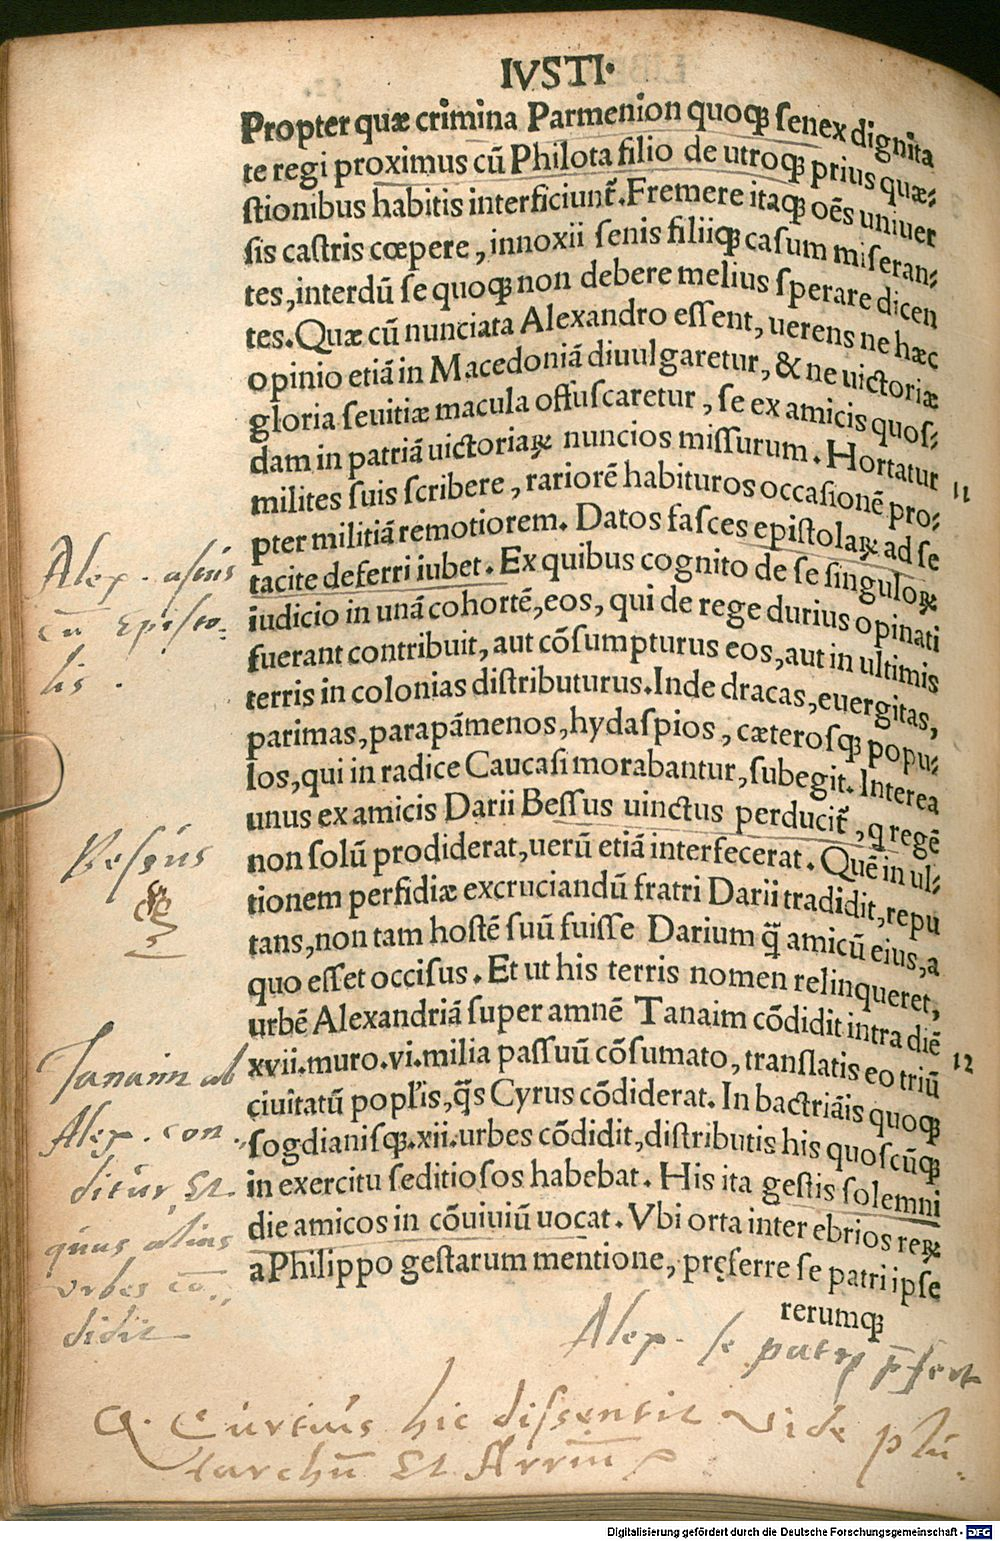 IVSTI·
Propter quæ crimina Parmenion quoqꝫ ſenex dignita
te regi proximus cū Philota filio de utroqꝫ prius quæ⸗
ſtionibus habitis interficiunt᷑. Fremere itaqꝫ oēs uniuer
ſis caſtris cœpere, innoxii ſenis filiiqꝫ caſum miſeran⸗
tes, interdū ſe quoqꝫ non debere melius ſperare dicen
tes. Quæ cū nunciata Alexandro eſſent, uerens ne hæc
opinio etiā in Macedoniā diuulgaretur, & ne uictoriæ
gloria ſeuitiæ macula offuſcaretur, ſe ex amicis quoſ⸗
dam in patriā uictoriaꝝ nuncios miſſurum. Hortatur
milites ſuis ſcribere, rariorē habituros occaſionē pro⸗
11
pter militiā remotiorem. Datos faſces epiſtolaꝝ ad ſe
tacite deferri iubet. Ex quibus cognito de ſe ſinguloꝝ
iudicio in unā cohortē, eos, qui de rege durius opinati
fuerant contribuit, aut cōſumpturus eos, aut in ultimis
terris in colonias diſtributurus. Inde dracas, euergitas,
parimas, parapāmenos, hydaſpios, cæteroſqꝫ popu⸗
los, qui in radice Caucaſi morabantur, ſubegit. Interea
unus ex amicis Darii Beſſus uinctus perducit᷑, q regē
non ſolū prodiderat, uerū etiā interfecerat. Quē in ul⸗
tionem perfidiæ excruciandū fratri Darii tradidit, repu
tans, non tam hoſtē ſuū fuiſſe Darium q̄ amicū eius, a
quo eſſet occiſus. Et ut his terris nomen relinqueret,
urbē Alexandriā ſuper amnē Tanaim cōdidit intra diē
xvii. muro. vi. milia paſſuū cōſumato, tranſlatis eo triū
12
ciuitatū popľis, q̄s Cyrus cōdiderat. In bactriāis quoqꝫ
ſogdianiſqꝫ. xii. urbes cōdidit, diſtributis his quoſcūqꝫ
in exercitu ſeditioſos habebat. His ita geſtis ſolemni
die amicos in cōuiuiū uocat. Vbi orta inter ebrios reꝝ
a Philippo geſtarum mentione, pręferre ſe patri ipſe
rerumqꝫ
Alex. asius
cū Episto-
lis.
Bessus
Tanaim ab
Alex. con-
ditur, Et
quas alias
vrbes co-
didit
Alex. se patri p̄fert
Q. Curtius hic dissentit vide plu-
tarchū Et Arrianū